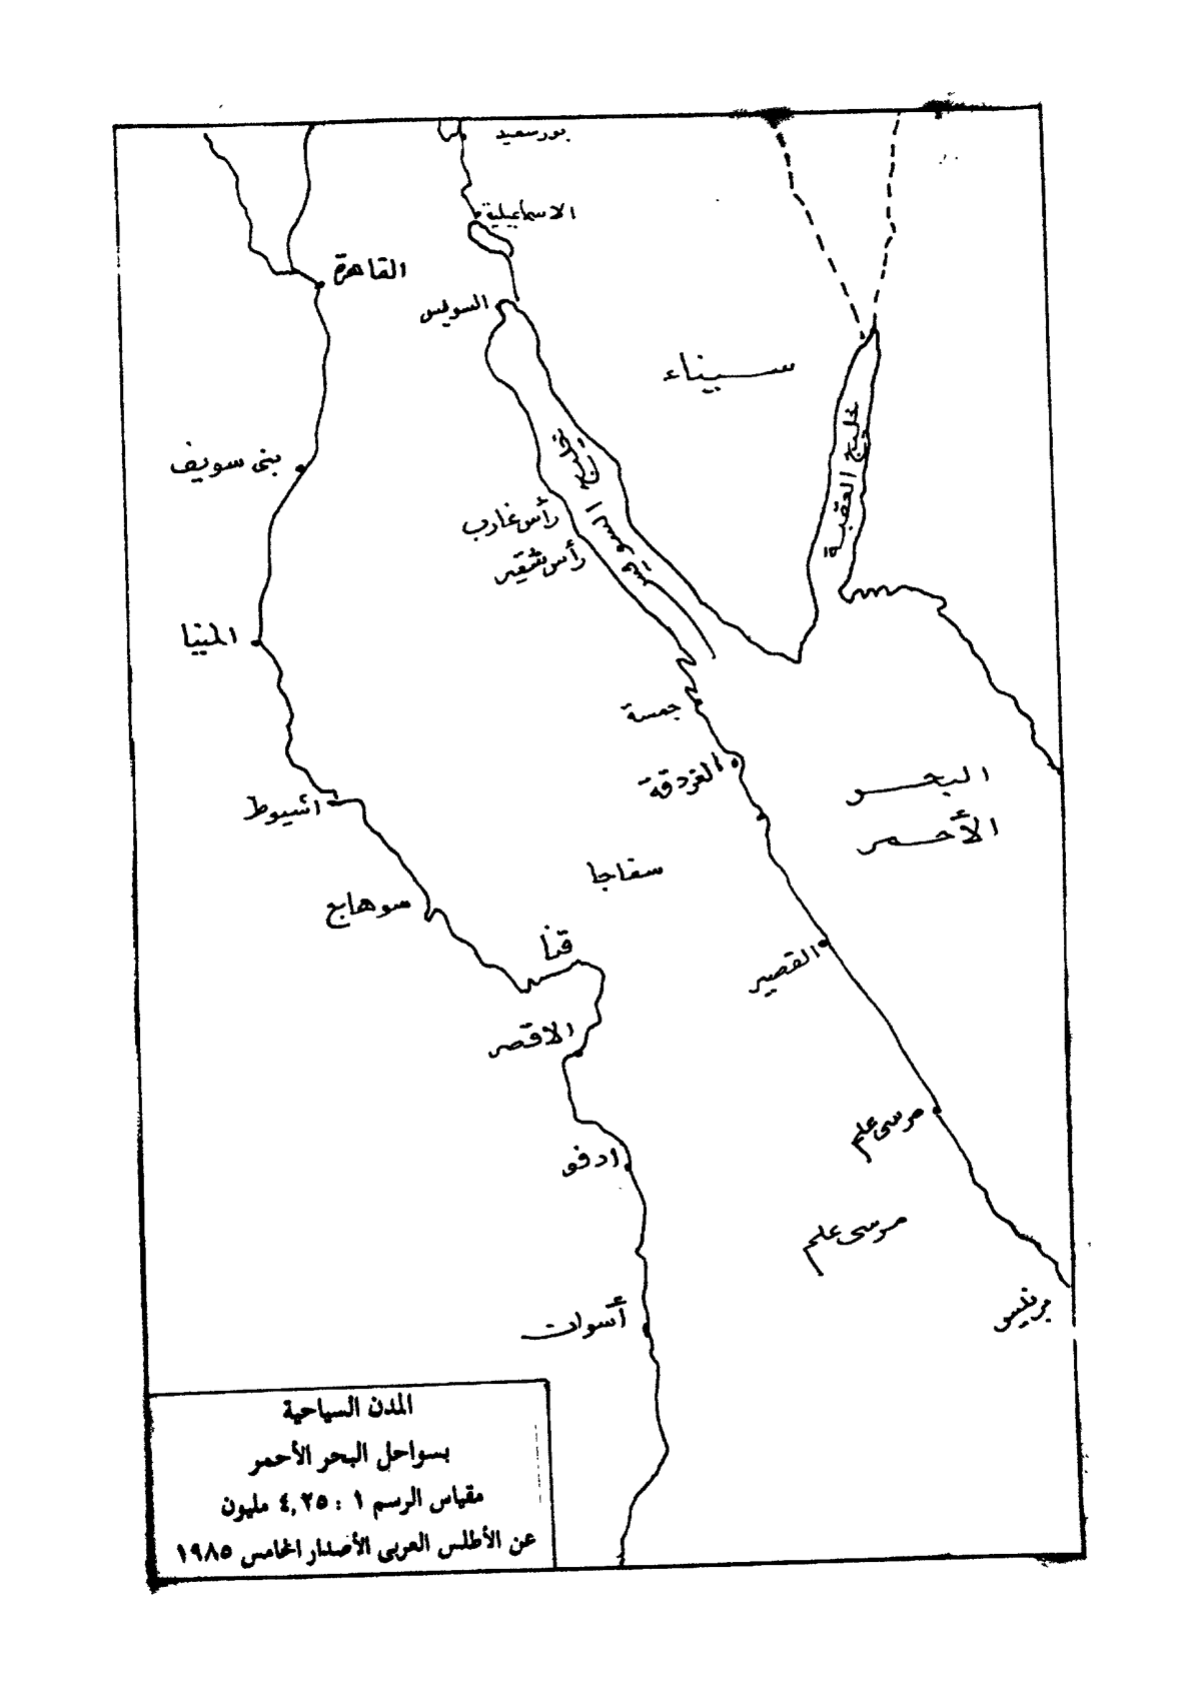 بورسعيد
الاسماعيلية
القاهرة
السويس
سيناء
خليج العقبة
خليج السويس
بنى سويف
رأس غارب
رأس شقير
المنيا
جمسة
الغردقة
البحر
الأحمر
اسيوط
سفاجا
سوهاج
قنا
القصير
الاقصر
مرسى علم
ادفو
مرسى علم
برنيس
أسوان
المدن السياحية
بسواحل البحر الأحمر
مقياس الرسم ١ : ٤,٢٥ مليون
عن الأطلس العربى الأصدار الخامس ١٩٨٥